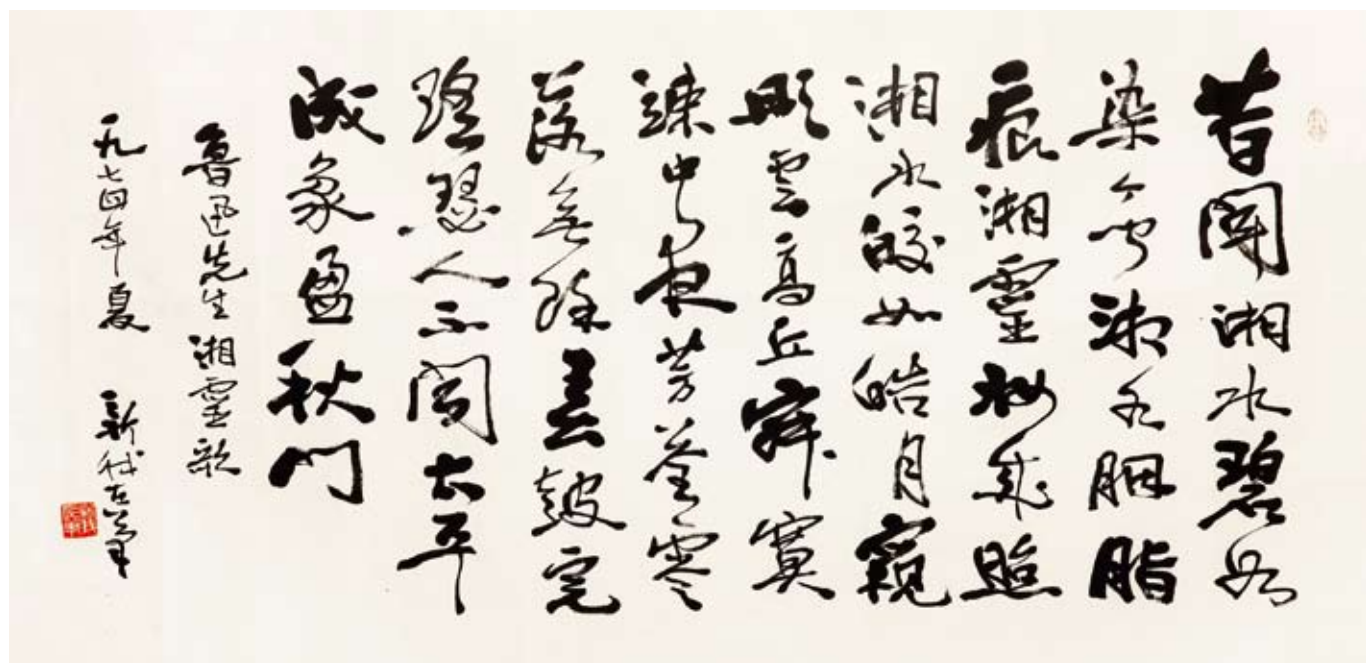 昔聞湘水碧如
染今聞湘水胭脂
痕湘靈妝成照
湘水皎如皓月窺
彤雲高丘寂寞
竦中夜芳荃零
落無餘春鼓完
瑤瑟人不聞太平
成象盈秋門
魯迅先生湘靈歌
一九七四年夏 新我左筆